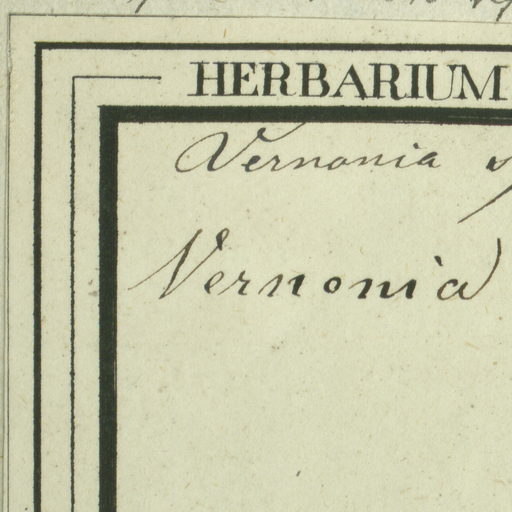 HERBARIUM
Vernonia
Vernonia